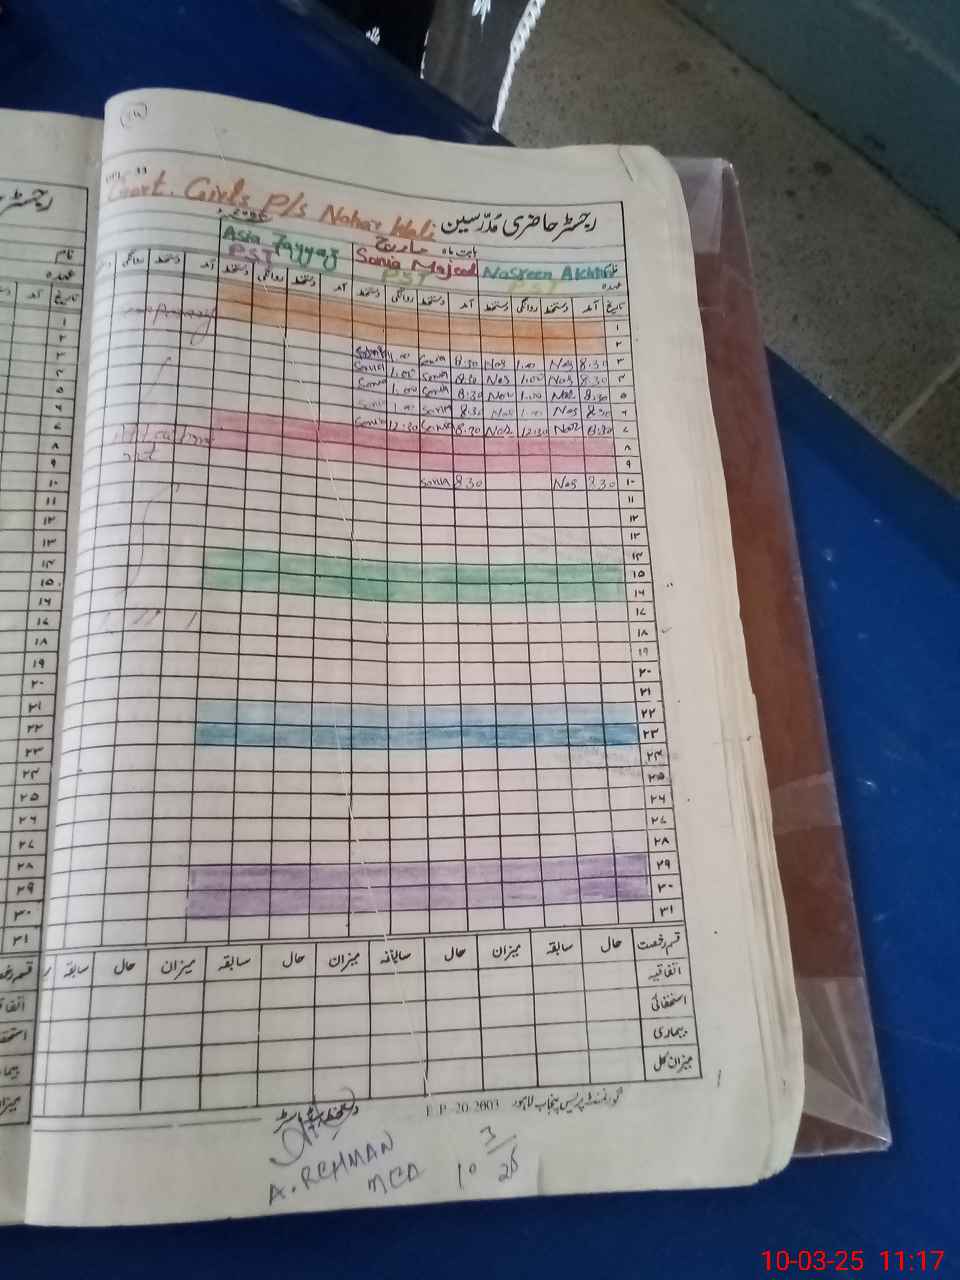 Govt. Girls P/s Nahar Wali
رجسٹر حاضری مُدرّسین
بابت ماہ مارچ
نام Nasreen Akhtar Sonia Majeed Asia Tayyaz
عہدہ PST PST PST
تاریخ آمد دستخط روانگی دستخط آمد دستخط روانگی دستخط آمد دستخط روانگی دستخط آمد دستخط روانگی
۱
۲
۳ 8.30 Nas 1.00 Nas 8.30 Sonia 1.00 Sonia
۴ 8.30 Nas 1.00 Nas 8.30 Sonia 1.00 Sonia
۵ 8.30 Nas 1.00 Nas 8.30 Sonia 1.00 Sonia
۶ 8.30 Nas 1.00 Nas 8.30 Sonia 1.00 Sonia
۷ 8.30 Nas 12.30 Nas 8.30 Sonia 12.30 Sonia
۸
۹
۱۰ 8.30 Nas 8.30 Sonia
۱۱
۱۲
۱۳
۱۴
۱۵
۱۶
۱۷
۱۸
۱۹
۲۰
۲۱
۲۲
۲۳
۲۴
۲۵
۲۶
۲۷
۲۸
۲۹
۳۰
۳۱
قسم رخصت حال سابقہ میزان حال سابقہ میزان حال سابقہ میزان حال سابقہ
اتفاقیہ
استحقاقی
بیماری
میزان کل
گورنمنٹ پریس پنجاب لاہور E.P-20-2003
A. REHMAN
MEA
10 3/25
10-03-25 11:17